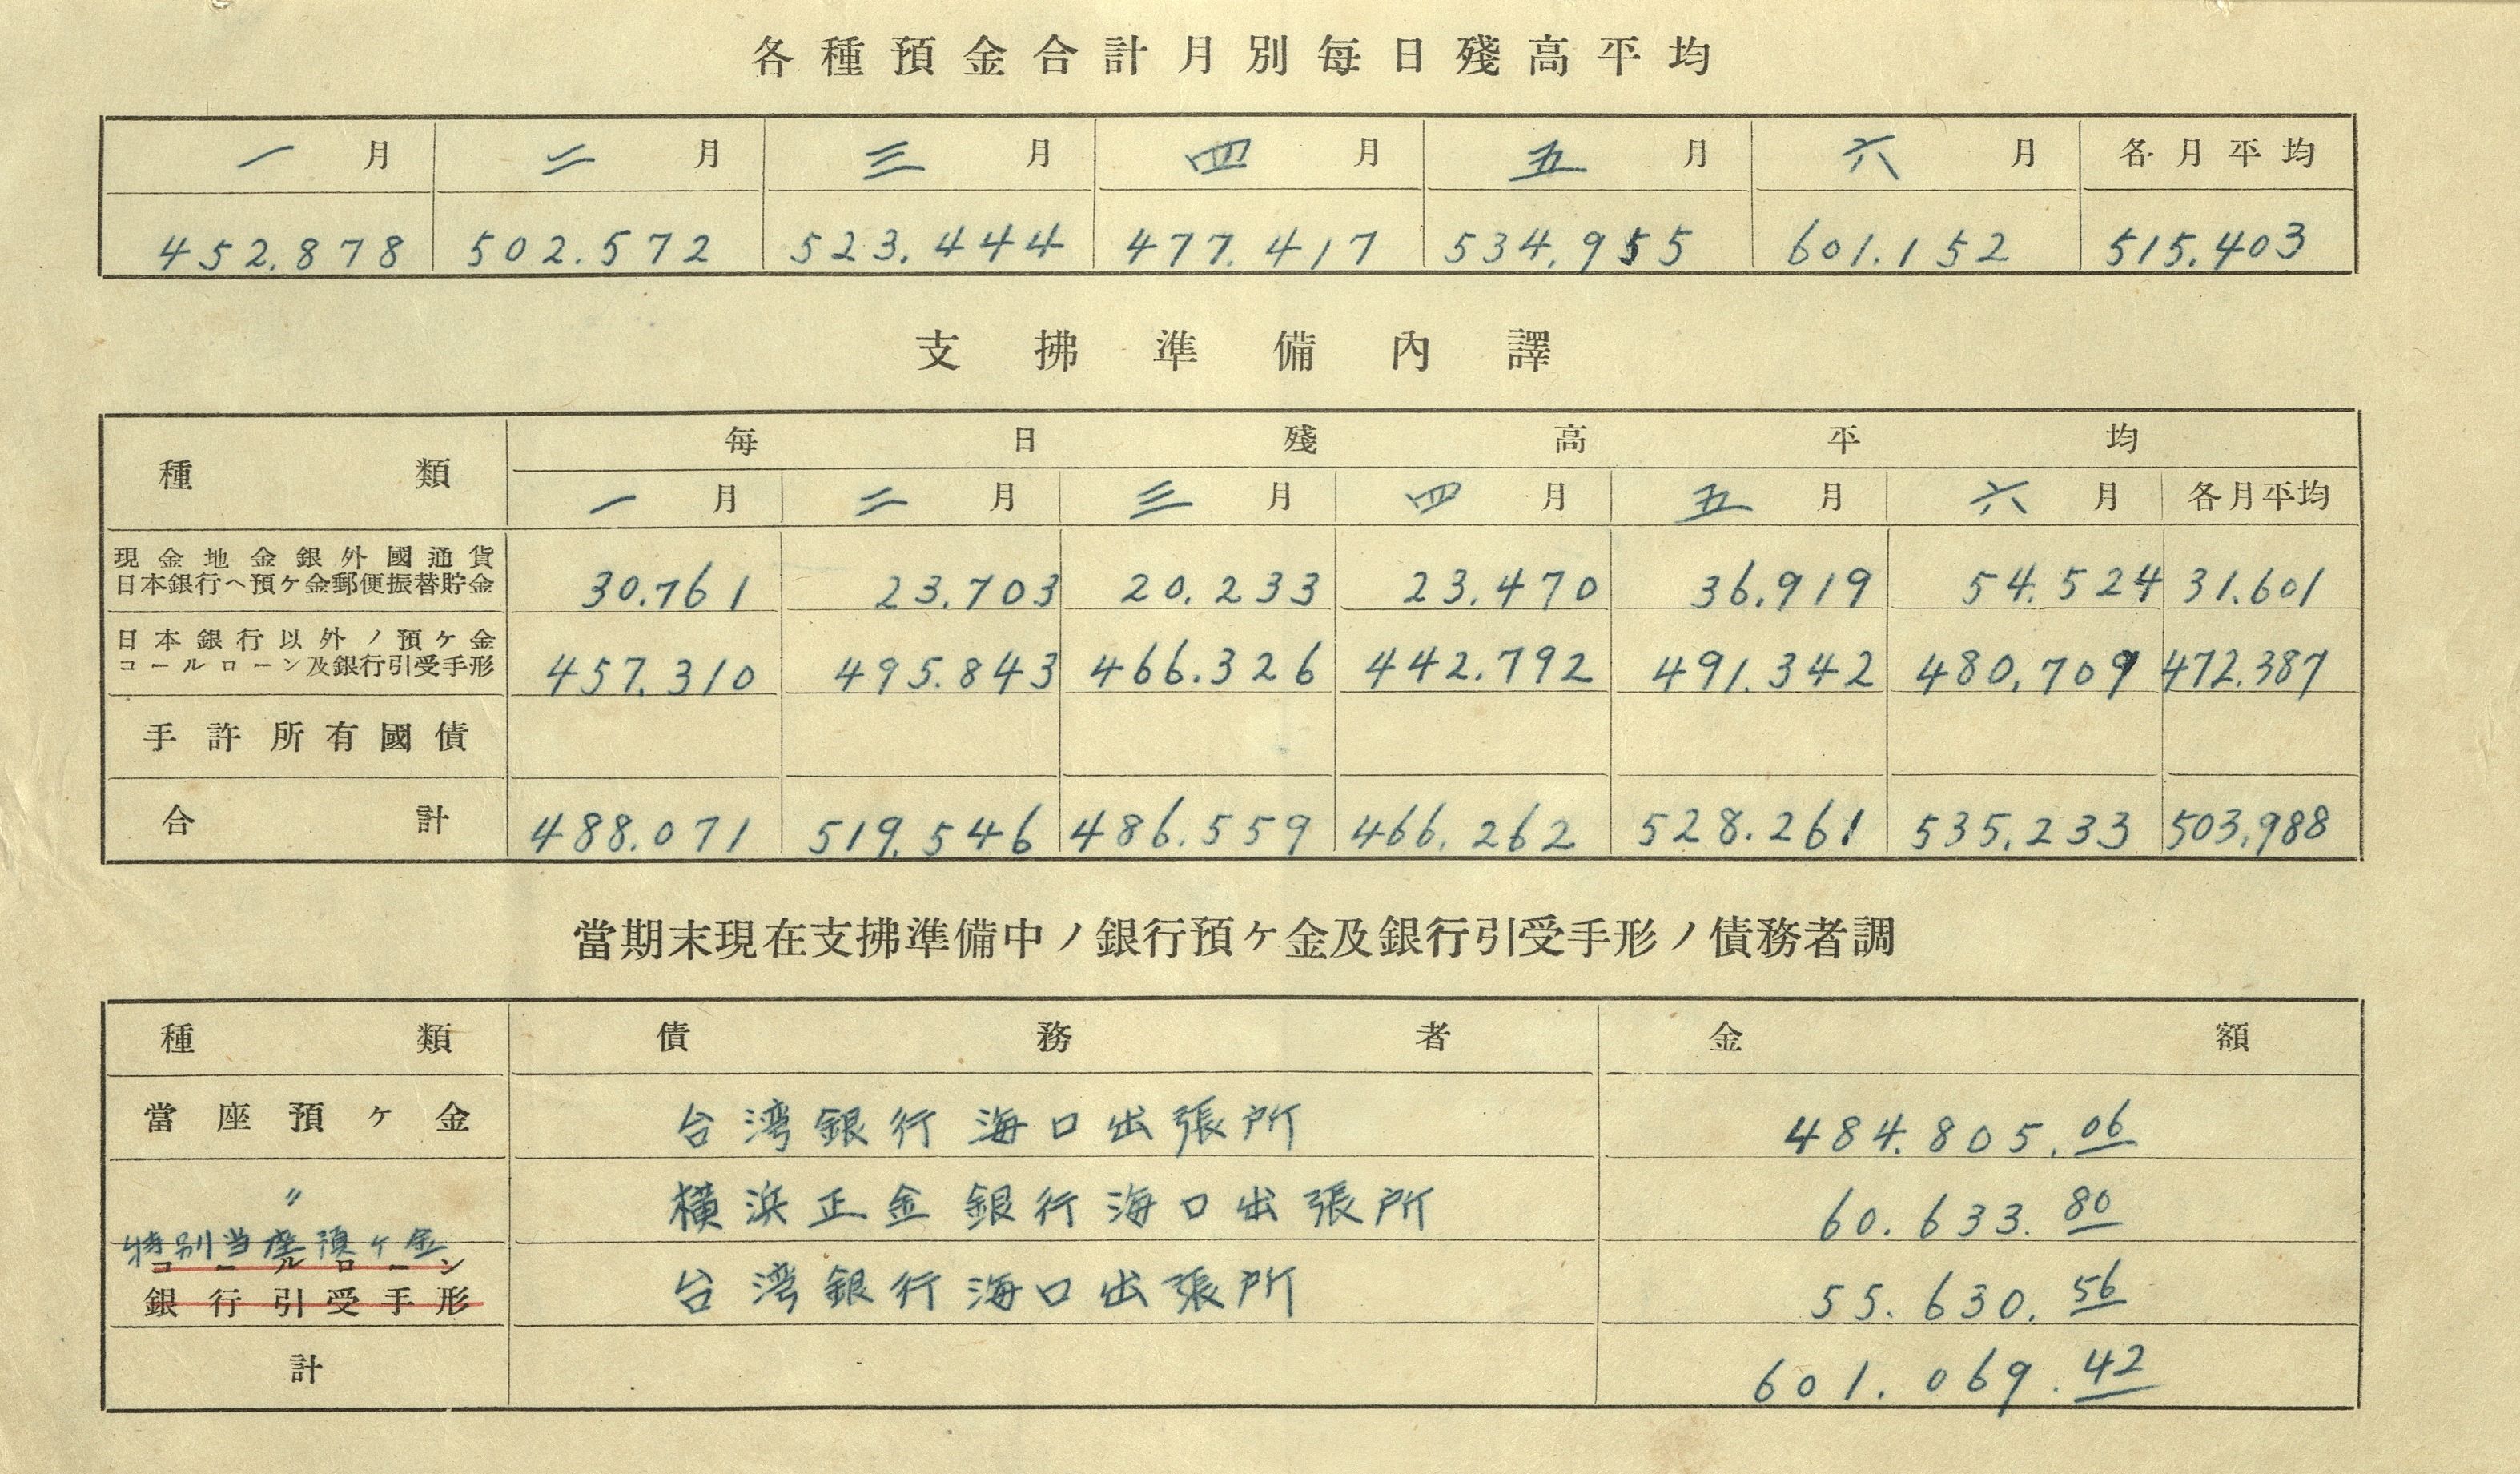 各種預金合計月別毎日殘高平均
一月 二月 三月 四月 五月 六月 各月平均
452.878 502.572 523.444 477.417 534.955 601.152 515.403
支拂準備內譯
種類 毎日殘高平均
一月 二月 三月 四月 五月 六月 各月平均
現金地金銀外國通貨
日本銀行ヘ預ケ金郵便振替貯金 30.761 23.703 20.233 23.470 36.919 54.524 31.601
日本銀行以外ノ預ケ金
コールローン及銀行引受手形 457.310 495.843 466.326 442.792 491.342 480.709 472.387
手許所有國債
合計 488.071 519.546 486.559 466.262 528.261 535.233 503.988
當期末現在支拂準備中ノ銀行預ケ金及銀行引受手形ノ債務者調
種類 債務者 金額
當座預ケ金 台湾銀行海口出張所 484.805.06
〃 横浜正金銀行海口出張所 60.633.80
特別当座預ケ金
コールローン
銀行引受手形 台湾銀行海口出張所 55.630.56
計 601.069.42